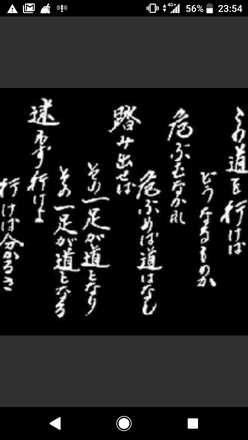 4G 56% 23:54
この道を行けば
どうなるものか
危ぶむなかれ
危ぶめば道はなし
踏み出せば
その一足が道となり
その一足が道となる
迷わず行けよ
行けば分かるさ